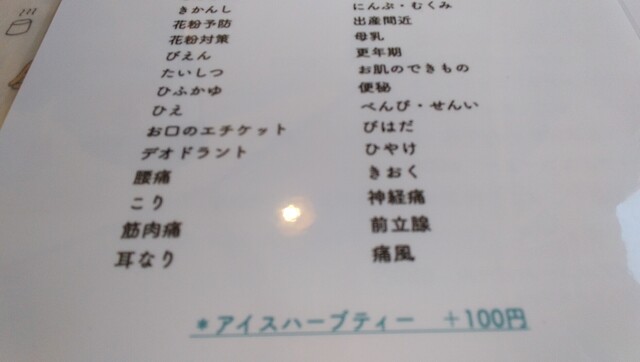 きかんし
花粉予防
花粉対策
びえん
たいしつ
ひふかゆ
ひえ
お口のエチケット
デオドラント
腰痛
こり
筋肉痛
耳なり
にんぷ・むくみ
出産間近
母乳
更年期
お肌のできもの
便秘
べんぴ・せんい
びはだ
ひやけ
きおく
神経痛
前立腺
痛風
*アイスハーブティー +100円